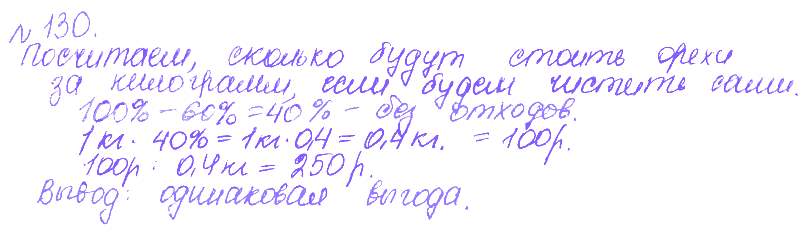 № 130.
Посчитаем, сколько будут стоить орехи
за килограмм, если будем чистить сами.
100% - 60% = 40% - без отходов.
1 кг · 40% = 1 кг · 0,4 = 0,4 кг. = 100 р.
100 р : 0,4 кг = 250 р.
Вывод: одинаковая выгода.